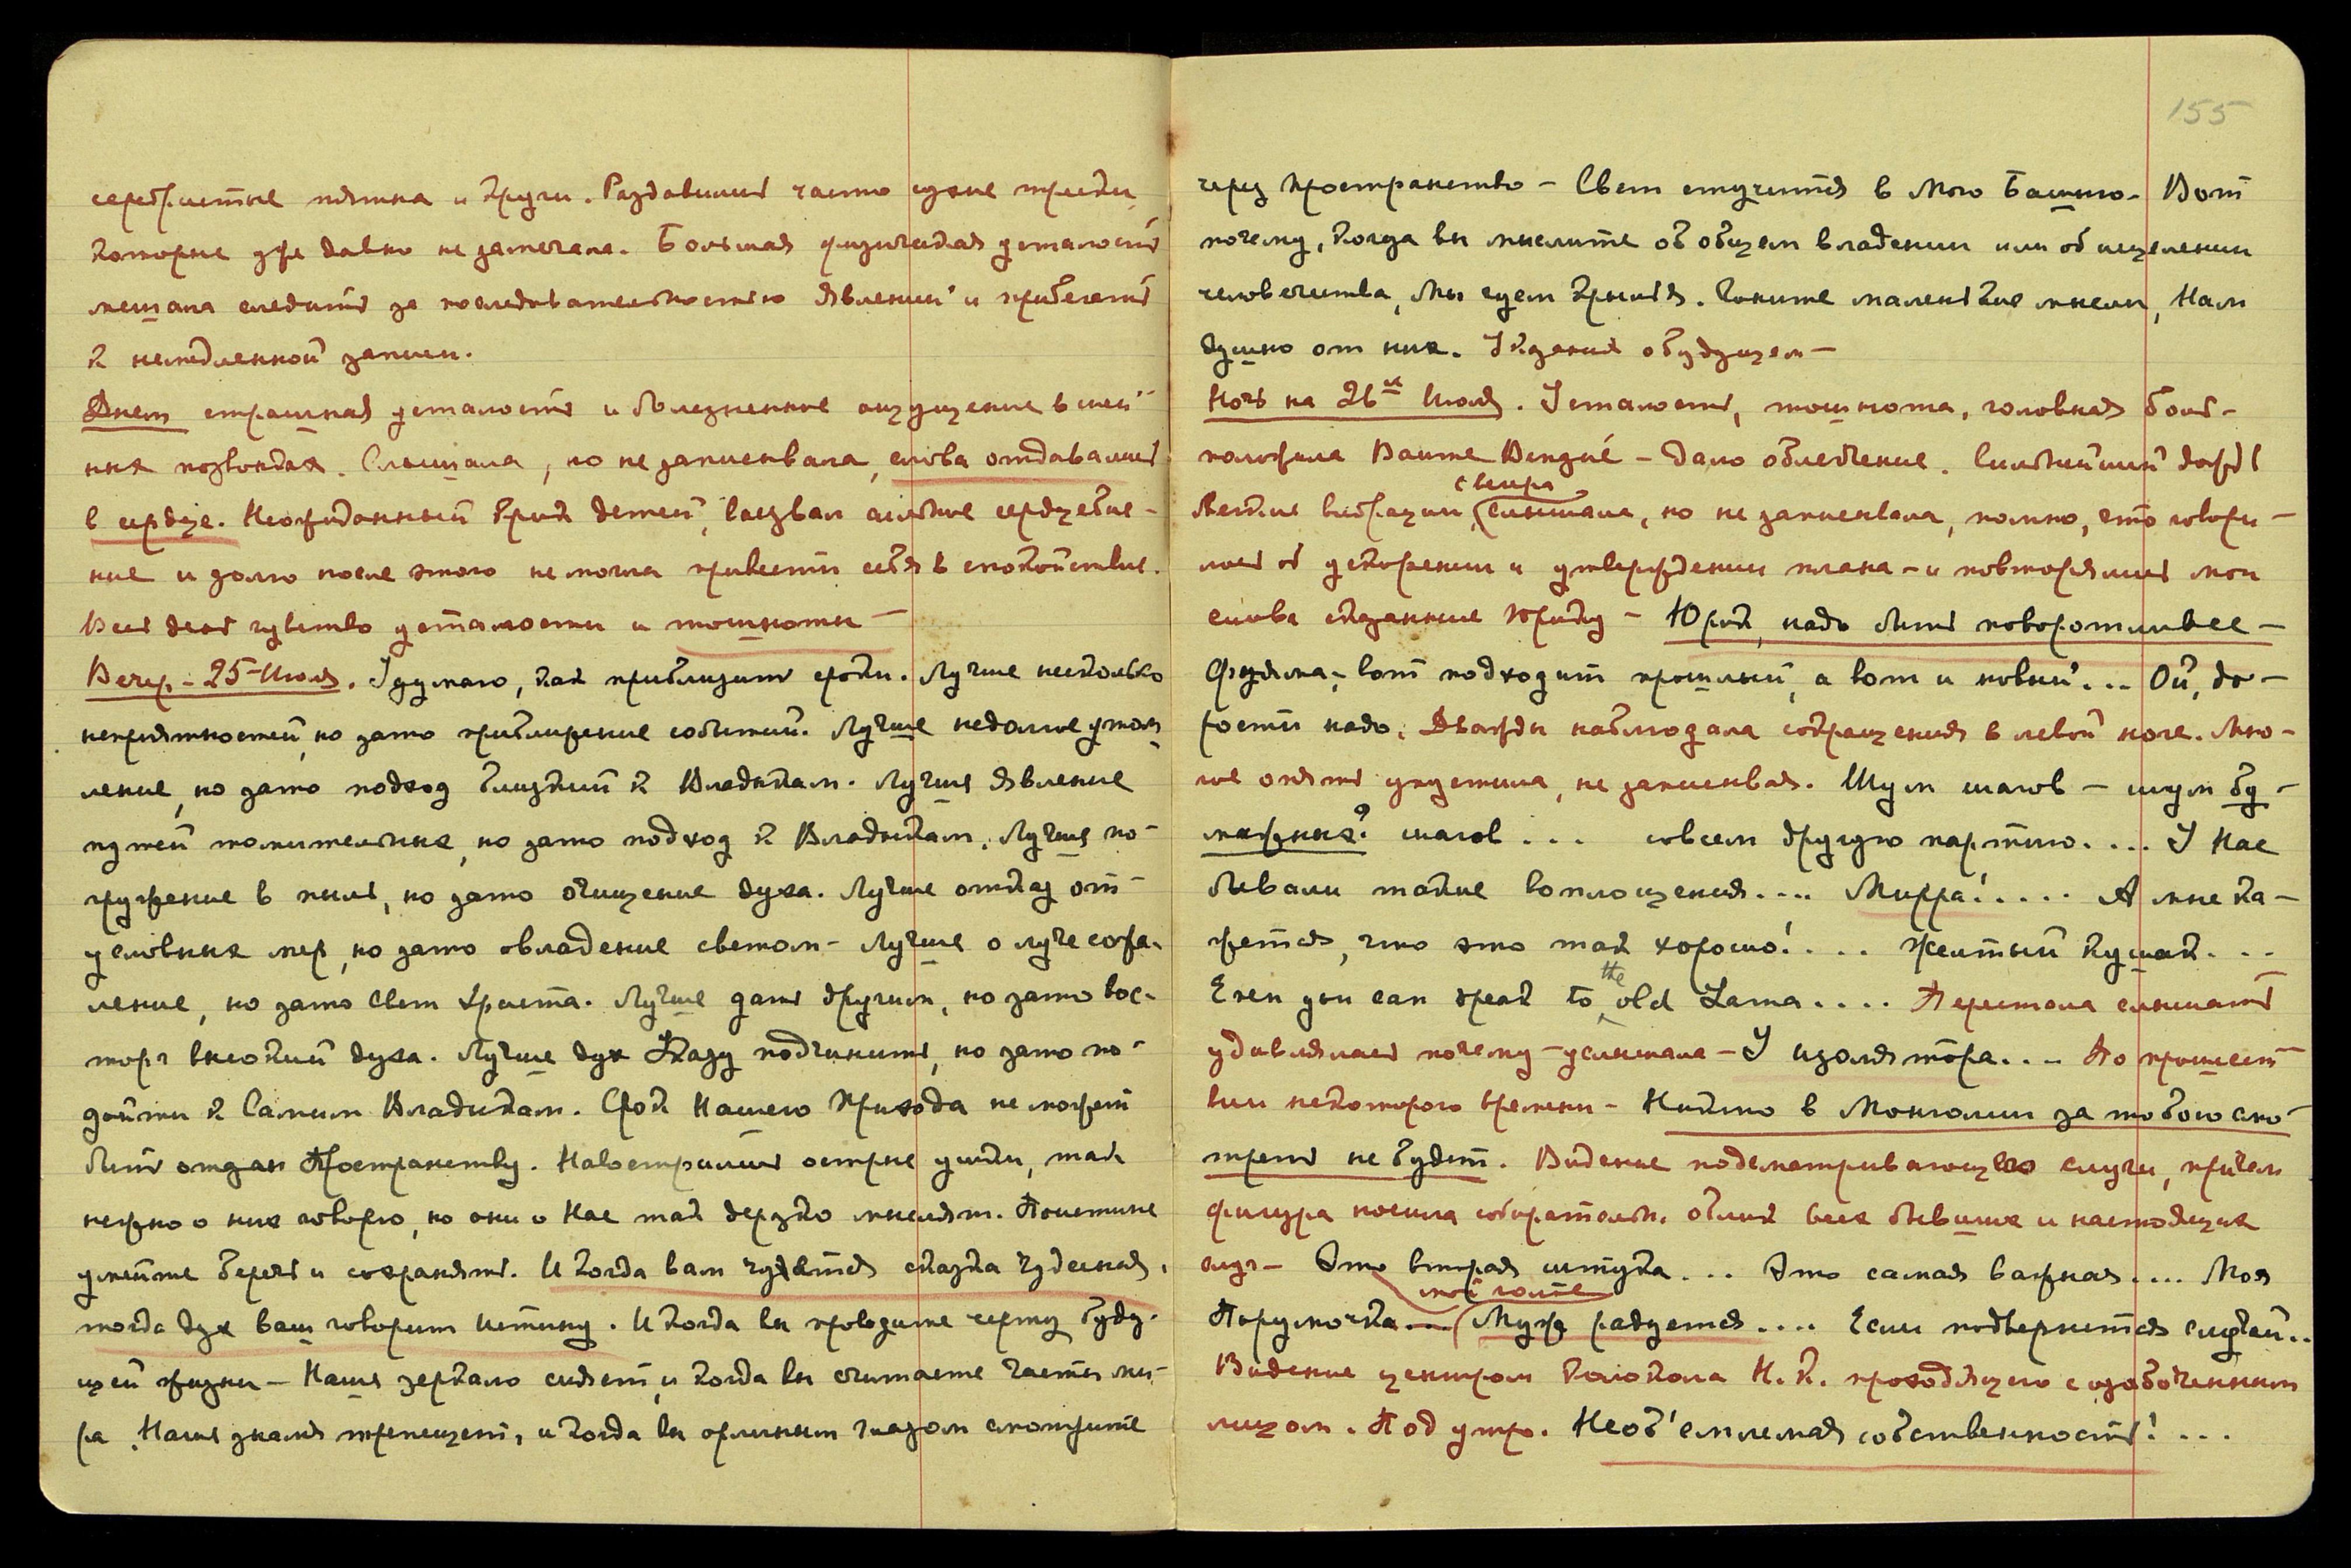 серебристые пятна и круги. Раздавались часто сухие трески,
которые уже давно не замечала. Большая физическая усталость
мешала следить за последовательностью явлений и прибегать
к немедленной записи.
Днем страшная усталость и болезненное ощущение в шей-
ных позвонках. Слышала, но не записывала, слова отдавались
в сердце. Неожиданный крик детей, вызвал сильное сердцебие-
ние и долго после этого не могла привести себя в спокойствие.
Весь день чувство усталости и тошноты —
Вечер - 25-Июля. Я думаю, как приблизить сроки. Лучше несколько
неприятностей, но зато приближение событий. Лучше недолгое утом-
ление, но зато подход близкий к Владыкам. Лучше явление
путей томительных, но зато подход к Владыкам. Лучше по-
гружение в пыль, но зато очищение духа. Лучше отказ от
условных мер, но зато овладение светом - Лучше о луче сожа-
ление, но зато Свет Христа. Лучше дать другим, но зато вос-
торг высокий духа. Лучше дух Указу подчинить, но зато по-
дойти к Самим Владыкам. Срок Нашего Прихода не может
быть отдан Пространству. Навострились острые ушки, так
нежно о них говорю, но они о Нас так дерзко мыслят. Поистине
умейте беречь и сохранять. И когда вам чудится сказка чудесная,
тогда дух ваш говорит истину. И когда вы проводите черту буду-
щей жизни — Наше зеркало сияет, и когда вы считаете части ми-
ра, Наше знамя трепещет, и когда вы орлиным глазом смотрите
155
через пространство — Свет стучится в Мою Башню - Вот
почему, когда вы мыслите об общем владении или об исцелении
человечества, Мы куем крылья. Гоните маленькие мысли, Нам
душно от них. Указания о будущем —
Ночь на 26ое Июля. Усталость, тошнота, головная боль -
положила Баume Bengué — дало облегчение. Сильнейший дождь
Легкие вибрации, (слышала, но не записывала, помню, что говори-
свира
лось об ускорении и утверждении плана - и повторялись мои
слова сказанные Юрику — Юрик, надо быть поворотливее —
Фудяма, вот подходит прошлый, а вот и новый... Ой, до-
рости надо. Дважды наблюдала сокращения в левой ноге. Мно-
гое опять упустила, не записывая. Шум шагов — шум бу-
мажных? шагов... совсем другую партию.... У Нас
бывали такие воплощения.... Мирра!..... А мне ка-
жется, что это так хорошо!.... Желтый кушак...
Even you can speak to the old Lama.... Перестала слышать
удивлялась почему — услышала — У изолятора... По прошест-
вии некоторого времени - Никто в Монголии за тобою смо-
треть не будет. Видение подсматривающего слуги, причем
фигура носила собирательн. облик всех бывших и настоящих
слуг — Это вторая штука... Это самая важная.... Моя
мой гость
Порумочка... (Муж радуется.... Если подвернется случай..
Видение центром колокола Н.К. проходящего с озабоченным
лицом. Под утро. Необ'емлемая собственность!...